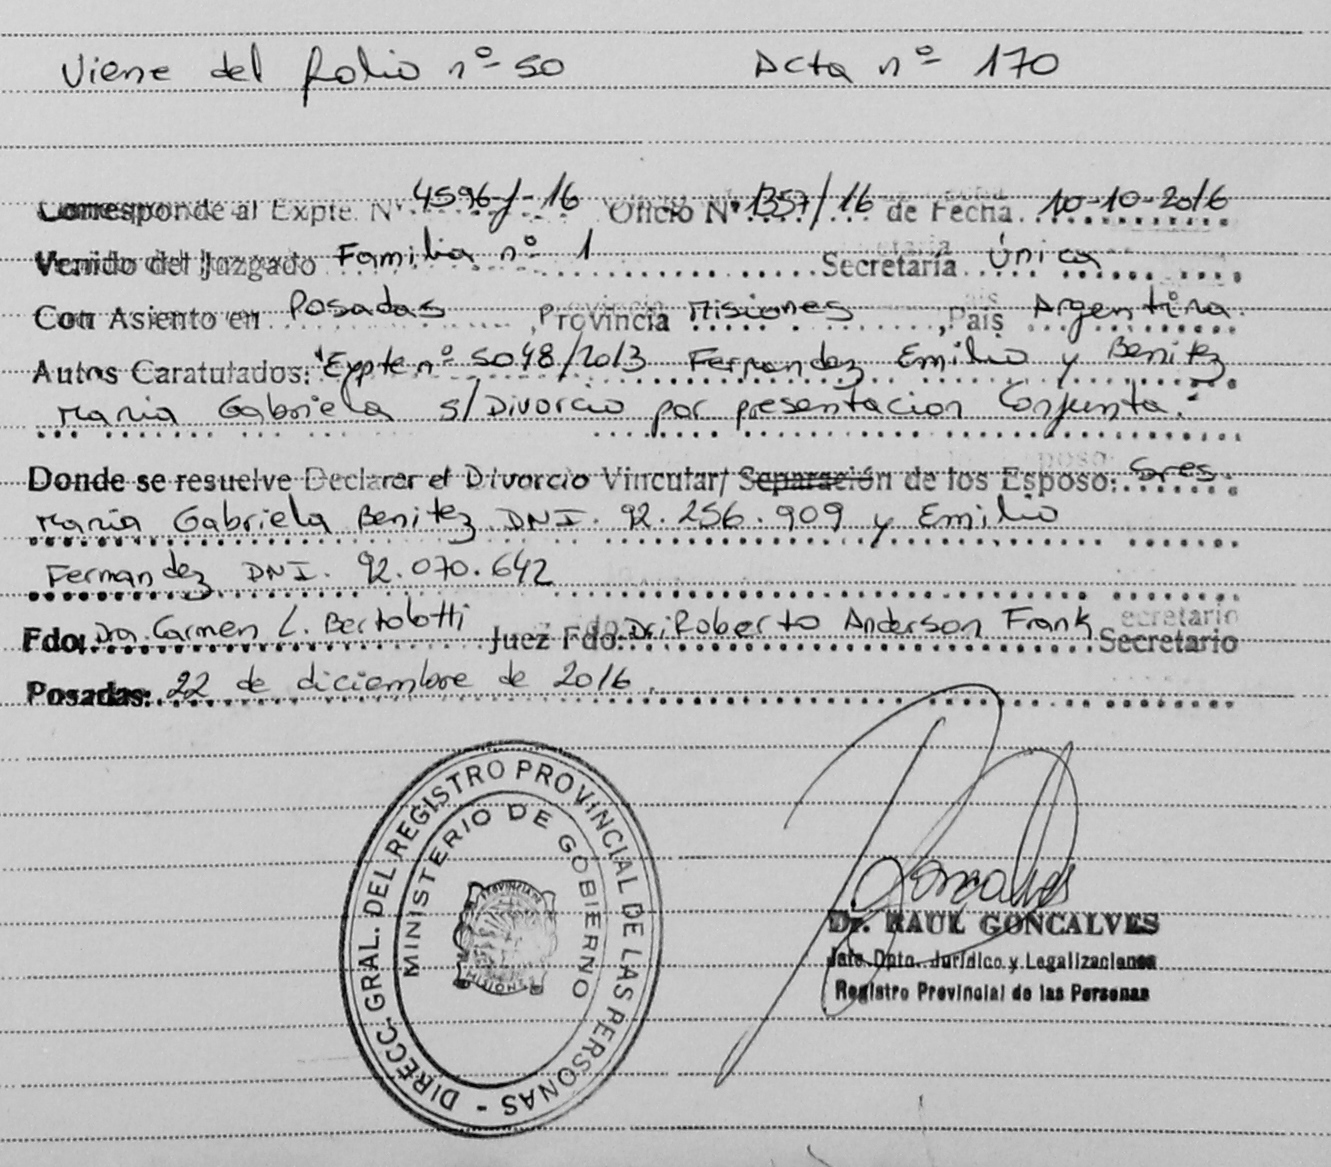 Viene del folio nº 50 Acta nº 170
Corresponde al Expte. Nº 4596/-16 Oficio Nº 1357/16 de Fecha 10-10-2016
Venido del Juzgado Familia nº 1 Secretaría Única
Con Asiento en Posadas, Provincia Misiones, País Argentina.
Autos Caratulados: "Expte nº 5048/2013 Fernandez Emilio y Benitez
Maria Gabriela s/Divorcio por presentacion Conjunta."
Donde se resuelve Declarar el Divorcio Vincular/ Separación de los Esposo: Sres.
María Gabriela Benitez DNI. 92.256.909 y Emilio
Fernandez DNI. 92.070.642
Fdo: Dra. Carmen L. Bertolotti Juez Fdo: Dr. Roberto Anderson Frank Secretario
Posadas: 22 de diciembre de 2016.
DIRECC. GRAL. DEL REGISTRO PROVINCIAL DE LAS PERSONAS -
MINISTERIO DE GOBIERNO
PROVINCIA DE
MISIONES
Goncalves
Dr. RAUL GONCALVES
Jefe Dpto. Jurídico y Legalizaciones
Registro Provincial de las Personas